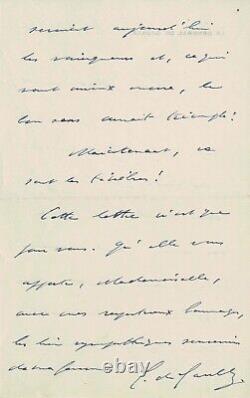 seraient aujourd'hui
les vainqueurs et, ce qui
vaut mieux encore, le
bon sens aurait triomphé!
Maintenant, ce
sont les ténèbres!
Cette lettre n'est que
pour vous. Qu'elle vous
apporte, Mademoiselle,
avec mes respectueux hommages,
les bien sympathiques souvenirs
de ma femme. C. de Gaulle